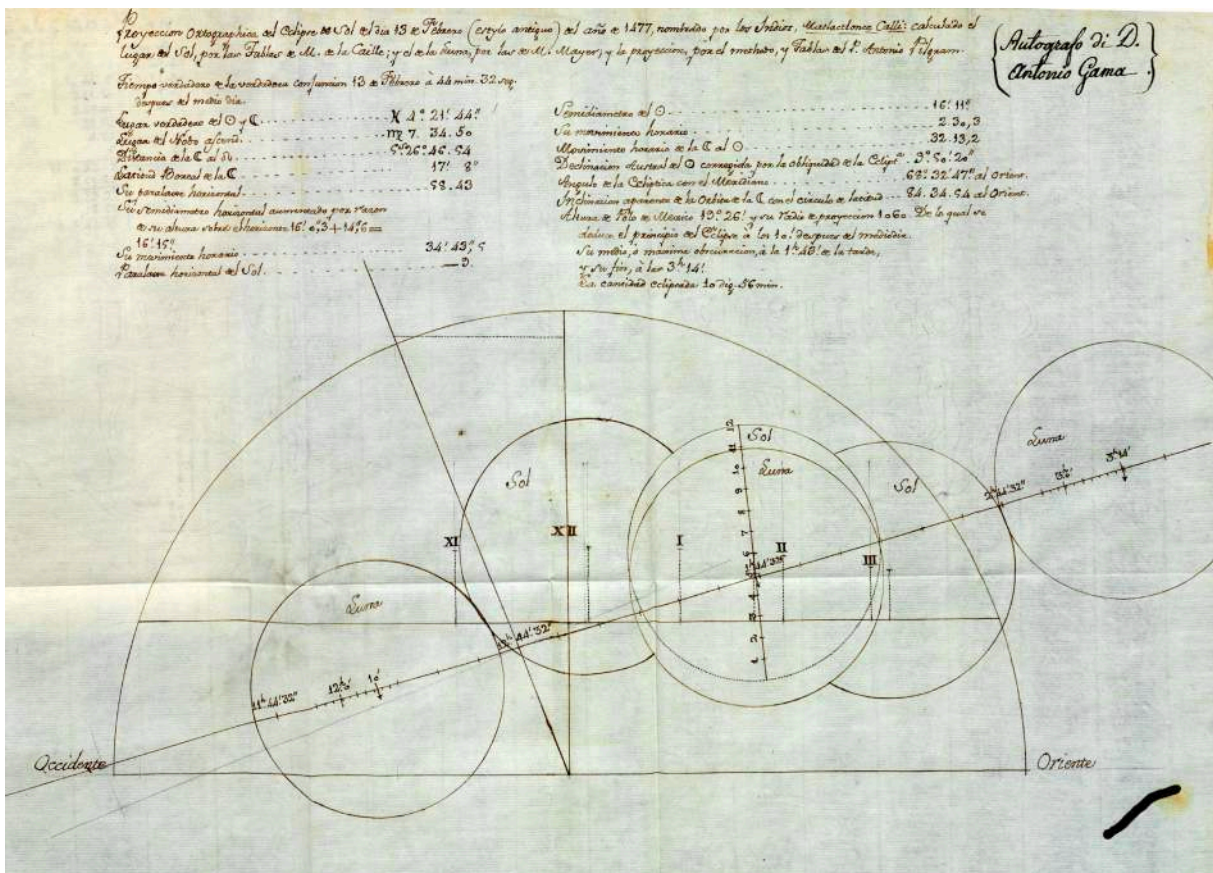 Proyeccion Ortographica del Eclipse de Sol el dia 13 de Febrero (estylo antiguo) del año de 1477, nombrado por los Indios, Matlactlonce Calli: calculado el
lugar del Sol, por las Tablas de M. de la Caille; y el de la Luna, por las de M. Mayer; y la proyeccion, por el methodo, y Tablas del P. Antonio Pilgram.
(Autografo di D.
Antonio Gama.)
Tiempo verdadero de la verdadera conjuncion 13 de Febrero à 44 min. 32 seg.
despues del medio dia.
Lugar verdadero del ☉ y ☾ ♓ 4° 21' 44"
Lugar del Nodo ascend. 7. 34. 50
Distancia de la ☾ al 5ˢ 26° 46. 54
Latitud Boreal de la ☾ 17' 8"
Su paralaxe horizontal 58. 43
Su semidiametro horizontal aumentado por razon
de su altura sobre el horizonte 16' 0,3 + 14,6 =
16' 15"
Su movimiento horario 34' 43",5
Paralaxe horizontal del Sol — 9.
Semidiametro del ☉ 16' 11"
Su movimiento horario 2.30,3
Movimiento horario de la ☾ al ☉ 32.13,2
Declinacion Austral del ☉ corregida por la obliquidad de la Eclipt. 9° 50' 20"
Angulo de la Ecliptica con el Meridiano 68° 32' 47" al Orient.
Inclinacion aparente de la Orbita de la ☾ con el circulo de latitud 84. 34. 54 al Orient.
Altura de Polo de Mexico 19° 26' y su radio de proyeccion 1060. De lo qual se
deduce el principio del Eclipse à los 10' despues del mediodia.
Su medio, o maxima obscuracion, à la 1ʰ 40' de la tarde,
y su fin, à las 3ʰ 14'
La cantidad eclipsada 10 dig. 56 min.
12
11
10
9
8
7
6
5
4
3
2
1
Sol
Luna
Sol
Luna
Sol
Luna
XI
XII
I
II
III
11ʰ 44' 32"
12ʰ 0'
10'
12ʰ 44' 32"
1ʰ 44' 32"
2ʰ 44' 32"
3ʰ 0'
3ʰ 14'
Occidente
Oriente